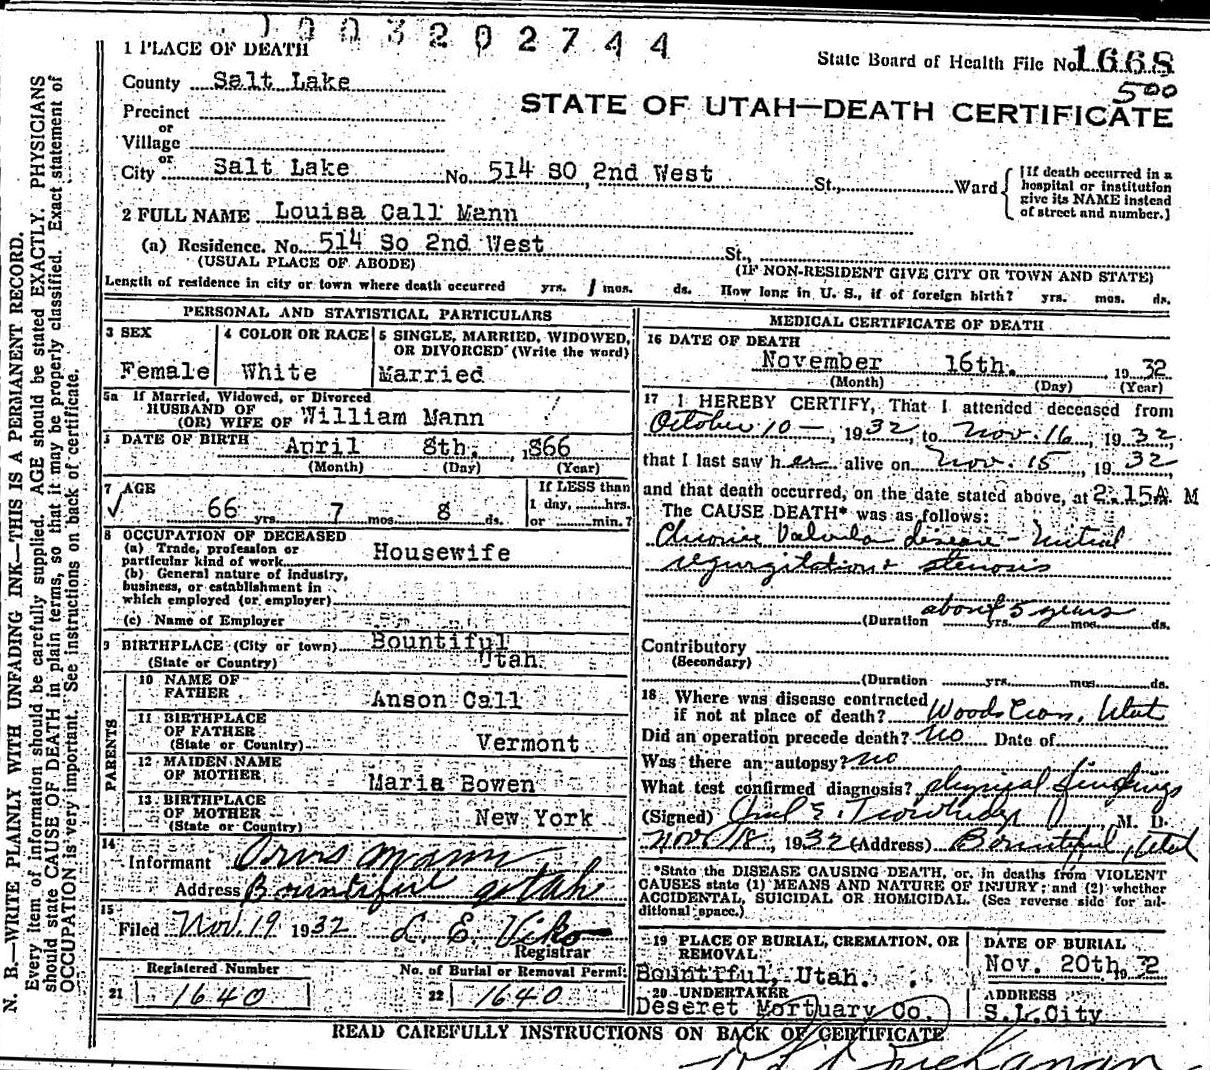 1003202744
State Board of Health File No. 1668
500
STATE OF UTAH—DEATH CERTIFICATE
1 PLACE OF DEATH
County Salt Lake
Precinct
or
Village
or
City Salt Lake No. 514 SO 2nd West St., Ward
[If death occurred in a hospital or institution give its NAME instead of street and number.]
2 FULL NAME Louisa Call Mann
(a) Residence. No. 514 So 2nd West St.,
(USUAL PLACE OF ABODE) (IF NON-RESIDENT GIVE CITY OR TOWN AND STATE)
Length of residence in city or town where death occurred yrs. 1 mos. ds. How long in U. S., if of foreign birth? yrs. mos. ds.
PERSONAL AND STATISTICAL PARTICULARS
3 SEX
Female
4 COLOR OR RACE
White
5 SINGLE, MARRIED, WIDOWED,
OR DIVORCED (Write the word)
Married
5a If Married, Widowed, or Divorced
HUSBAND OF
(OR) WIFE OF William Mann
DATE OF BIRTH April 8th. 1866
(Month) (Day) (Year)
7 AGE
66 yrs. 7 mos. 8 ds.
If LESS than
1 day, hrs.
or min.?
8 OCCUPATION OF DECEASED
(a) Trade, profession or
particular kind of work Housewife
(b) General nature of industry,
business, or establishment in
which employed (or employer)
(c) Name of Employer
9 BIRTHPLACE (City or town) Bountiful
(State or Country) Utah
PARENTS
10 NAME OF
FATHER Anson Call
11 BIRTHPLACE
OF FATHER
(State or Country) Vermont
12 MAIDEN NAME
OF MOTHER Maria Bowen
13 BIRTHPLACE
OF MOTHER
(State or Country) New York
14
Informant Orvis Mann
Address Bountiful Utah
15
Filed Nov. 19 1932 L. E. Viko
Registrar
Registered Number
21 1640
No. of Burial or Removal Permit
22 1640
MEDICAL CERTIFICATE OF DEATH
16 DATE OF DEATH
November 16th. 1932
(Month) (Day) (Year)
17 I HEREBY CERTIFY, That I attended deceased from
October 10 —, 1932, to Nov. 16, 1932,
that I last saw her alive on Nov. 15, 1932
and that death occurred, on the date stated above, at 2:15A M
The CAUSE DEATH* was as follows:
Chronic Valvular disease - Mitral
regurgitation & stenosis
about 5 years
(Duration yrs. mos. ds.
Contributory
(Secondary)
(Duration yrs. mos. ds.
18 Where was disease contracted
if not at place of death? Woods Cross, Utah
Did an operation precede death? No Date of
Was there an autopsy? no
What test confirmed diagnosis? physical findings
(Signed) E. Trowbridge, M. D.
Nov 18, 1932 (Address) Bountiful, Utah
*State the DISEASE CAUSING DEATH, or, in deaths from VIOLENT
CAUSES state (1) MEANS AND NATURE OF INJURY; and (2) whether
ACCIDENTAL, SUICIDAL OR HOMICIDAL. (See reverse side for ad-
ditional space.)
19 PLACE OF BURIAL, CREMATION, OR
REMOVAL
Bountiful, Utah.
DATE OF BURIAL
Nov. 20th 1932
20 UNDERTAKER
Deseret Mortuary Co.
ADDRESS
S.L.City
READ CAREFULLY INSTRUCTIONS ON BACK OF CERTIFICATE
N. B.—WRITE PLAINLY WITH UNFADING INK—THIS IS A PERMANENT RECORD.
Every item of information should be carefully supplied. AGE should be stated EXACTLY. PHYSICIANS
should state CAUSE OF DEATH in plain terms, so that it may be properly classified. Exact statement of
OCCUPATION is very important. See instructions on back of certificate.